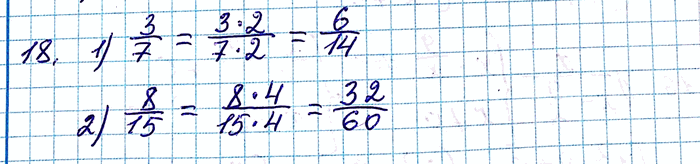 18. 1) 3/7 = 3·2/7·2 = 6/14
2) 8/15 = 8·4/15·4 = 32/60